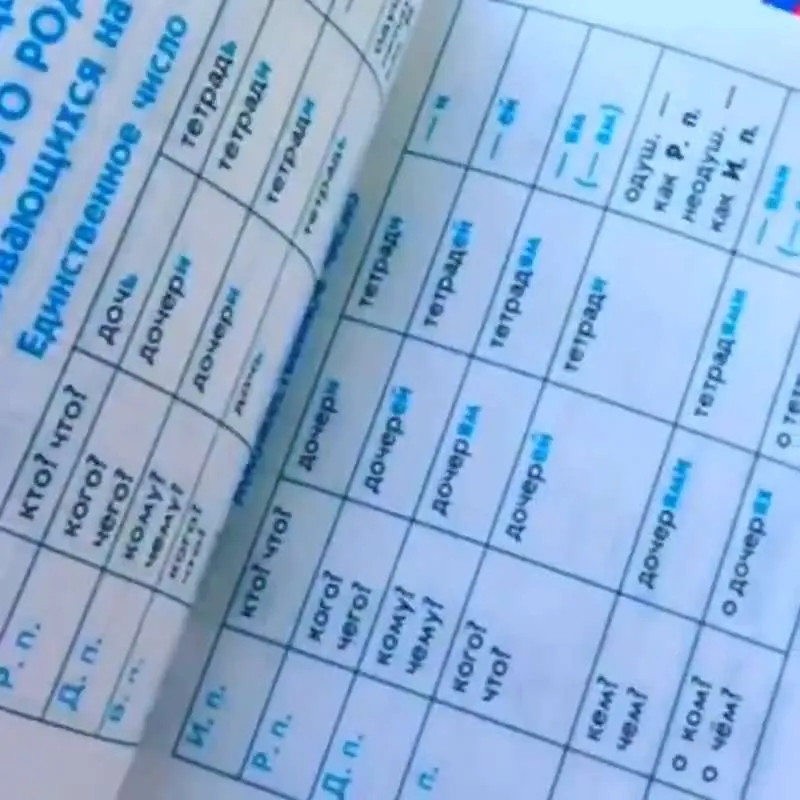 ОГО РОД
ВАЮЩИХСЯ НА
Единственное число
кто? что? дочь тетрадь
Р. п. кого? чего? дочери тетради
Д. п. кому? чему? дочери тетради
В. п. кого? что? дочь тетрадь
число
И. п. кто? что? дочери тетради — и
Р. п. кого? чего? дочерей тетрадей — ей
Д. п. кому? чему? дочерям тетрадям — ям (— ам)
п. кого? что? дочерей тетради одуш. — как Р. п. неодуш. — как И. п.
кем? чем? дочерями тетрадями — ями
о ком? о чём? о дочерях о тет